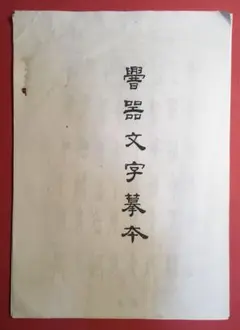 器文字摹本